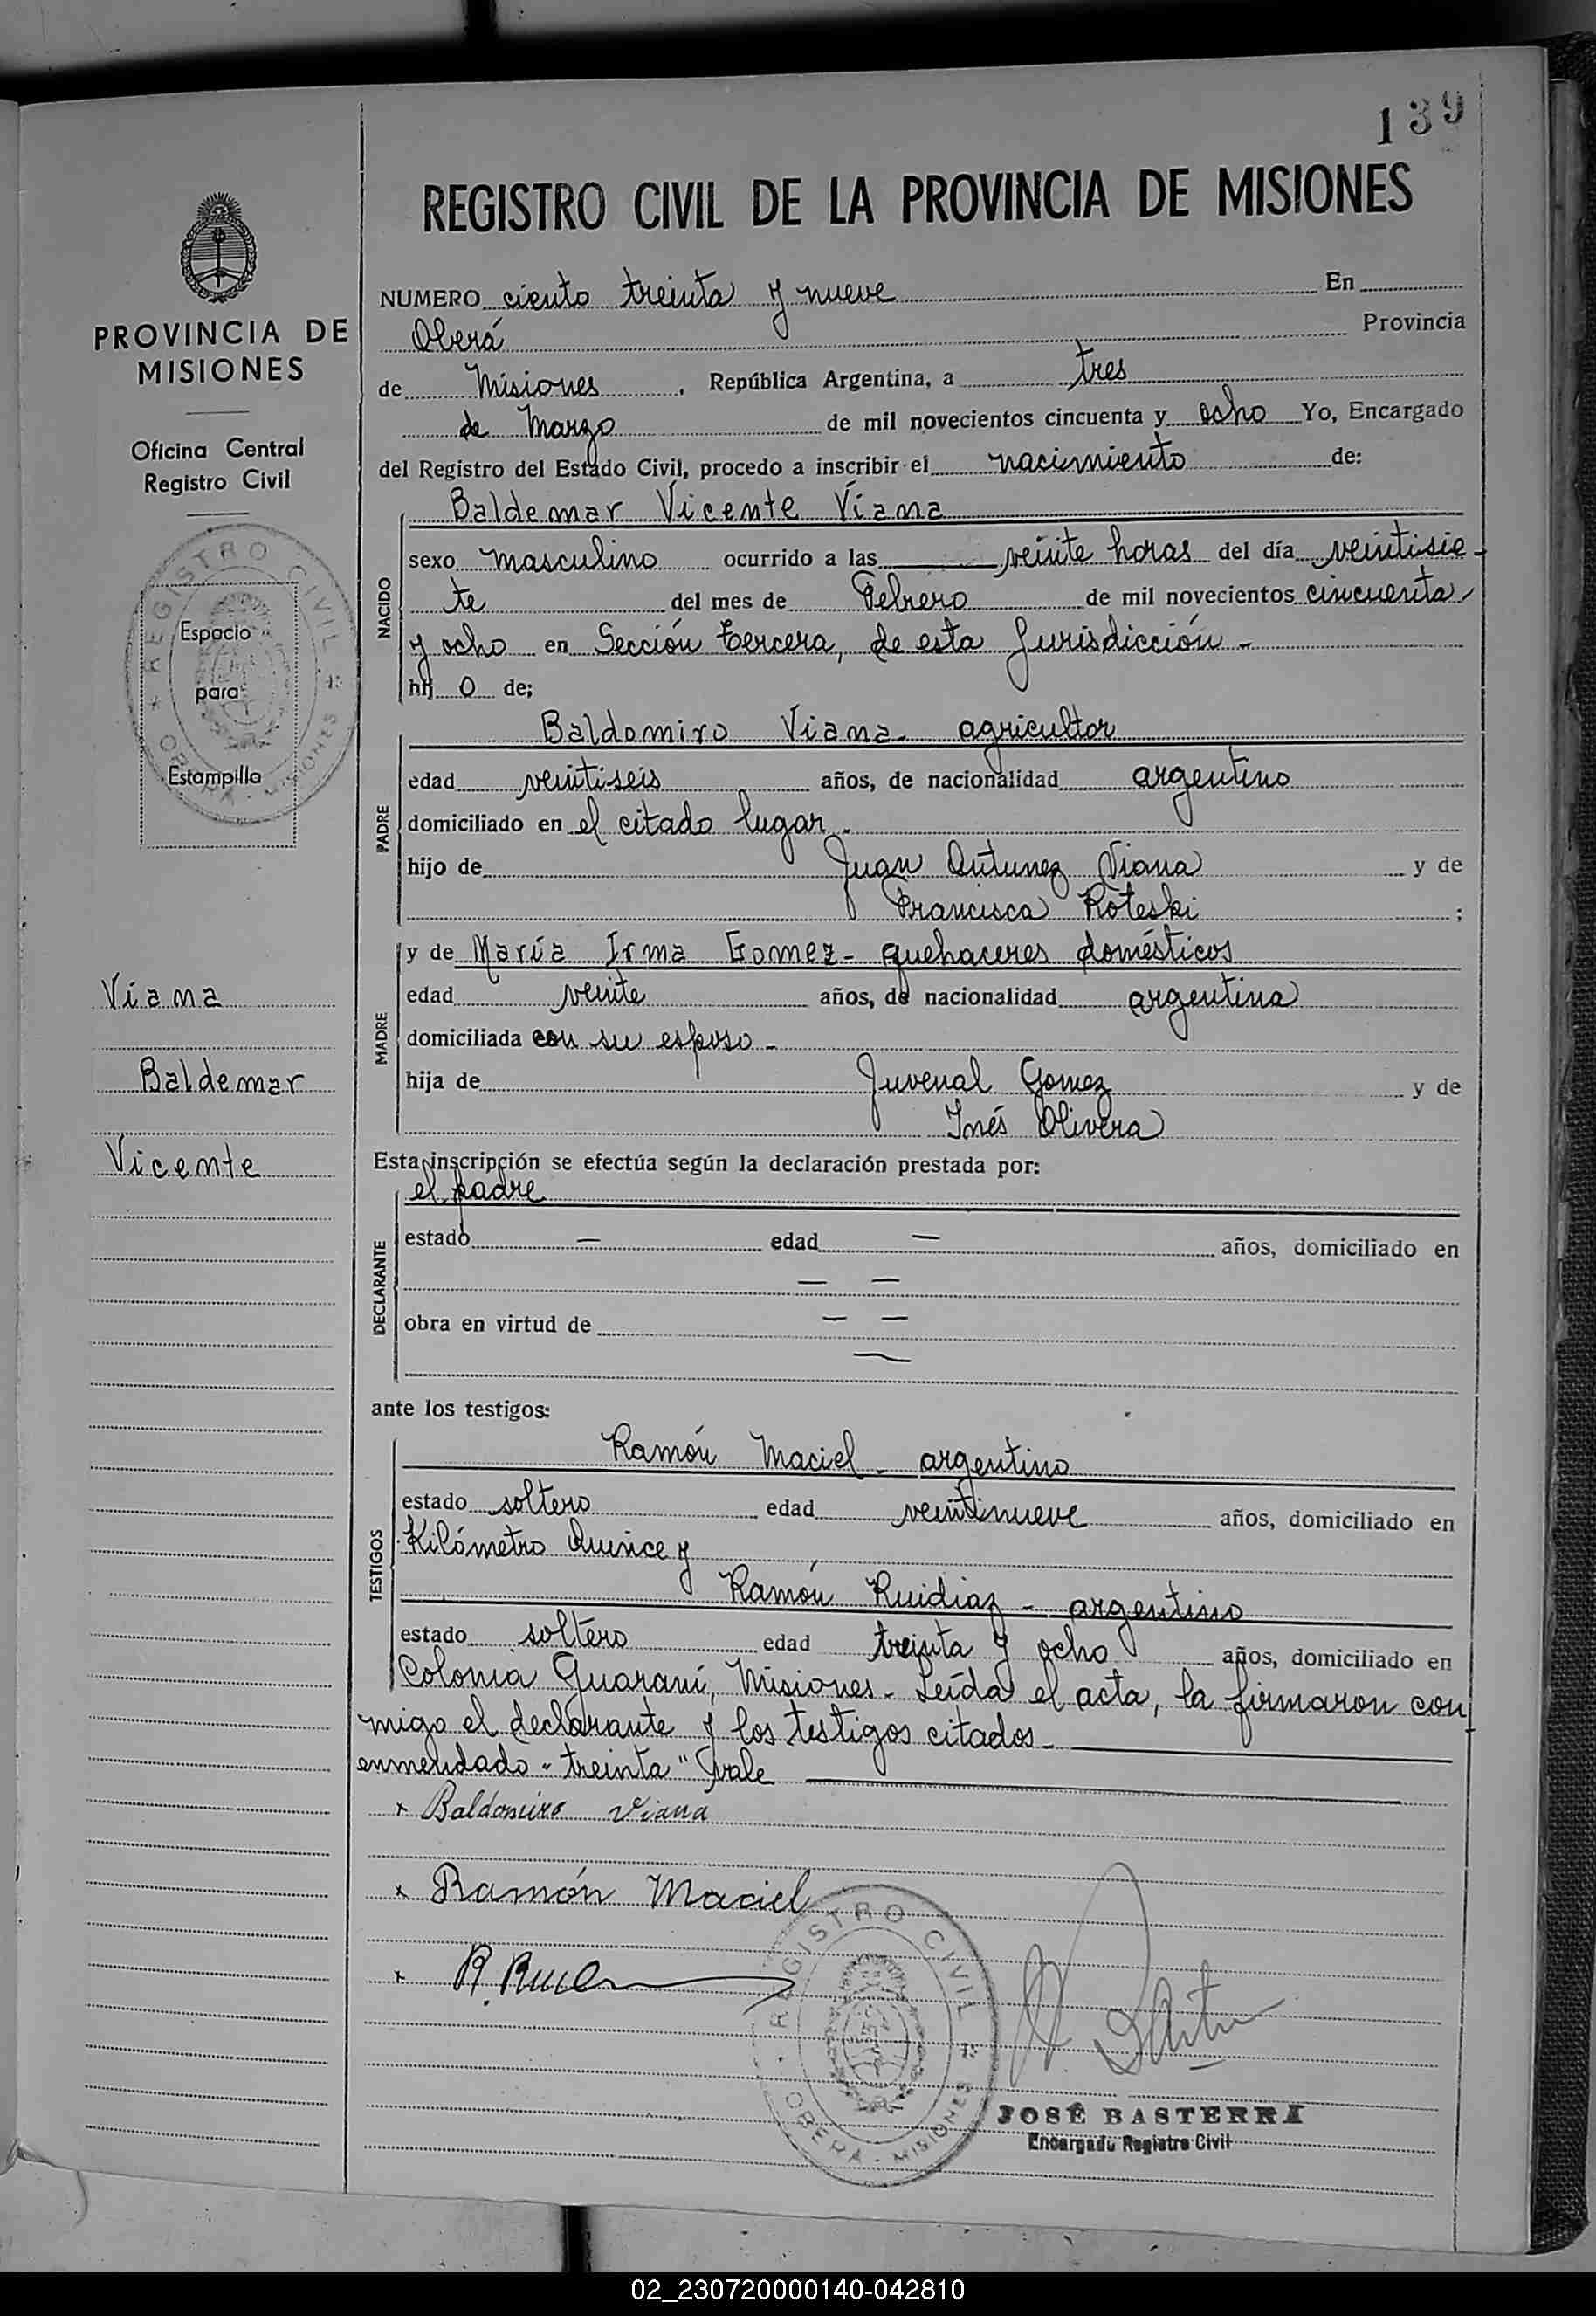 139
REGISTRO CIVIL DE LA PROVINCIA DE MISIONES
NUMERO ciento treinta y nueve En
Oberá Provincia
de Misiones, República Argentina, a tres
de Marzo de mil novecientos cincuenta y ocho Yo, Encargado
del Registro del Estado Civil, procedo a inscribir el nacimiento de:
NACIDO
Baldemar Vicente Viana
sexo masculino ocurrido a las veinte horas del día veintisie-
te del mes de Febrero de mil novecientos cincuenta
y ocho en Sección tercera, de esta Jurisdicción -
hij o de;
PADRE
Baldomiro Viana - agricultor
edad veintiseis años, de nacionalidad argentino
domiciliado en el citado lugar -
hijo de Juan Antunez Viana y de
Francisca Roteski ;
MADRE
y de María Irma Gomez - quehaceres domésticos
edad veinte años, de nacionalidad argentina
domiciliada con su esposo -
hija de Juvenal Gomez y de
Inés Olivera
Esta inscripción se efectúa según la declaración prestada por:
DECLARANTE
el padre
estado — edad — años, domiciliado en
— —
obra en virtud de — —
—
ante los testigos:
TESTIGOS
Ramón Maciel - argentino
estado soltero edad veintinueve años, domiciliado en
Kilómetro Quince y
Ramón Ruidiaz - argentino
estado soltero edad treinta y ocho años, domiciliado en
Colonia Guaraní, Misiones - Leída el acta, la firmaron con
migo el declarante y los testigos citados -
enmendado "treinta" Vale
x Baldomiro Viana
x Ramón Maciel
x R.
REGISTRO CIVIL
OBERA - MISIONES
JOSÉ BASTERRA
Encargado Registro Civil
PROVINCIA DE
MISIONES
Oficina Central
Registro Civil
REGISTRO CIVIL
OBERA - MISIONES
Espacio
para
Estampilla
Viana
Baldemar
Vicente
02_230720000140-042810